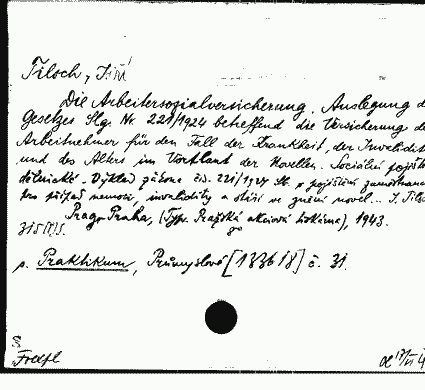 Filsch, Jiří
Die Arbeitersozialversicherung. Auslegung d
Gesetzes Slg. Nr. 221/1924 betreffend die Versicherung de
Arbeitnehmer für den Fall der Krankheit, der Invalidit
und des Alters im Wortlaut der Novellen. Sociální pojišt
dělnické. Výklad zákona čís. 221/1924 Sb. o pojištění zaměstnanc
pro případ nemoci, invalidity a stáří ve znění novel... J. Fils
Prag-Praha, (Typ. Pražská akciová tiskárna), 1943.
315
s. Praktikum, Průmyslové [1336/8] č. 31.